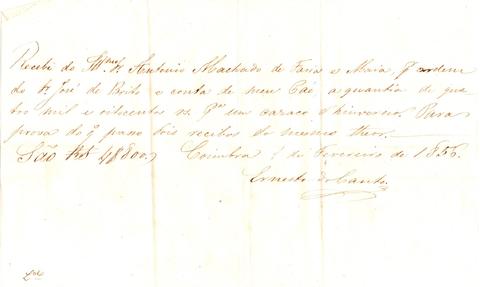 Recebi do Illmo Sr. Antonio Machado de Faria e Maia, p ordem
do Sr. José de Brito e conta de meu Pae a quantia de qua
tro mil e oitocentos rs. pa um casaco d'hinverno. Para
prova do q passo dois recibos do mesmo theor.
São Rs 4$800. Coimbra 1 de Fevereiro de 1856.
Ernesto do Canto